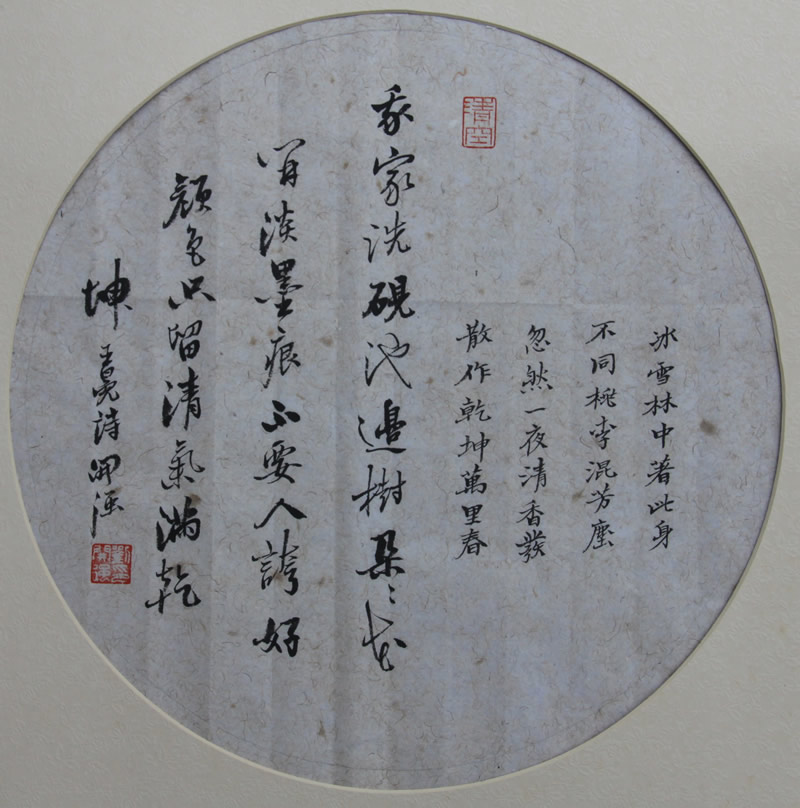 冰雪林中著此身
不同桃李混芳塵
忽然一夜清香發
散作乾坤萬里春
清空
我家洗硯池邊樹朵々花
開淡墨痕不要人誇好
顏色只留清氣滿乾
坤
王冕詩開強
劉印開強